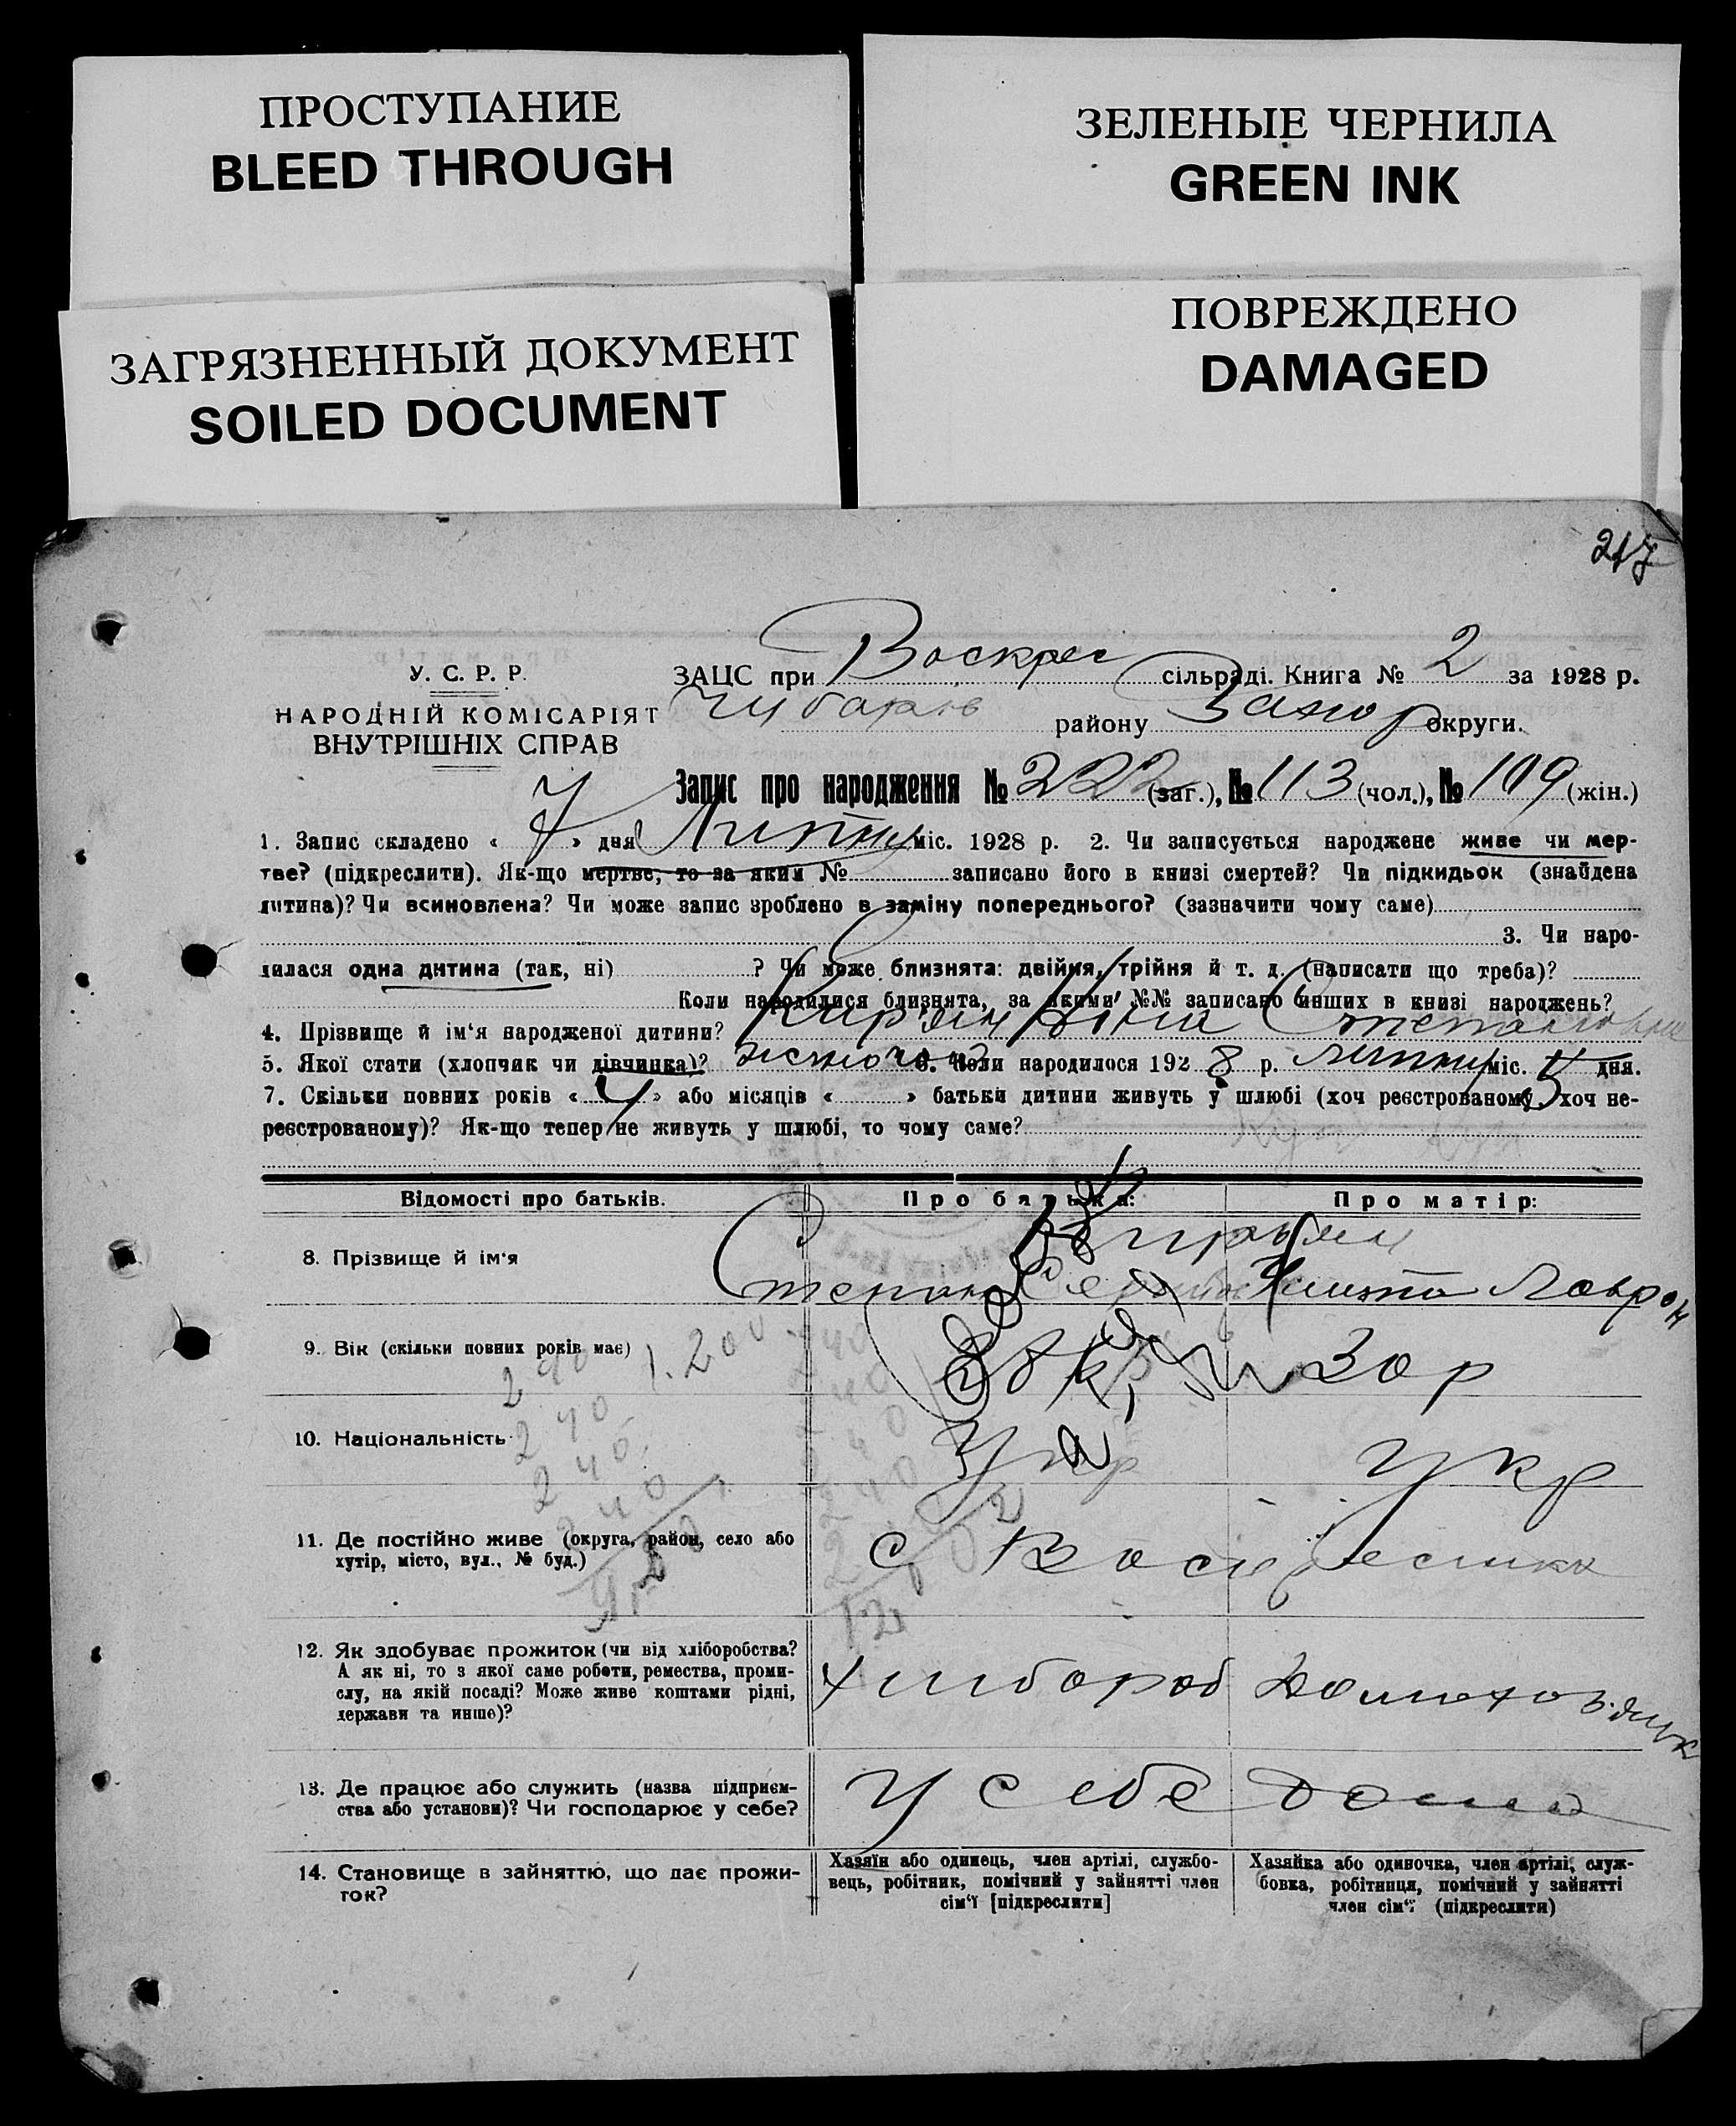 ПРОСТУПАНИЕ
BLEED THROUGH
ЗЕЛЕНЫЕ ЧЕРНИЛА
GREEN INK
ЗАГРЯЗНЕННЫЙ ДОКУМЕНТ
SOILED DOCUMENT
ПОВРЕЖДЕНО
DAMAGED
217
У. С. Р. Р.
НАРОДНІЙ КОМІСАРІЯТ
ВНУТРІШНІХ СПРАВ
ЗАЦС при Воскрес сільраді. Книга № 2 за 1928 р.
Чубарів району Запор округи.
Запис про народження № 222 (заг.), № 113 (чол.), № 109 (жін.)
1. Запис складено « 7 » дня Липня міс. 1928 р. 2. Чи записується народжене живе чи мер-
тве? (підкреслити). Як-що мертве, то за яким № записано його в книзі смертей? Чи підкидьок (знайдена
дитина)? Чи всиновлена? Чи може запис зроблено в заміну попереднього? (зазначити чому саме)
3. Чи наро-
дилася одна дитина (так, ні) ? Чи може близнята: двійня, трійня й т. д. (написати що треба)?
Коли народилися близнята, за якими №№ записано инших в книзі народжень?
4. Прізвище й ім'я народженої дитини? Ніна Степановна
5. Якої стати (хлопчик чи дівчинка)? жіночої 6. Коли народилося 1928 р. липня міс. 5 дня.
7. Скільки повних років « 4 » або місяців « » батьки дитини живуть у шлюбі (хоч реєстрованому, хоч не-
реєстрованому)? Як-що тепер не живуть у шлюбі, то чому саме?
Відомості про батьків. Про батька: Про матір:
8. Прізвище й ім'я
Степан Лавρον
9. Вік (скільки повних років має) 28 30 р
10. Національність Укр Укр
11. Де постійно живе (округа, район, село або
хутір, місто, вул., № буд.)
с Воскресенка
12. Як здобуває прожиток (чи від хліборобства?
А як ні, то з якої саме роботи, ремества, проми-
слу, на якій посаді? Може живе коштами рідні,
держави та инше)?
хлибороб
13. Де працює або служить (назва підприєм-
ства або установи)? Чи господарює у себе?
У себе дома
14. Становище в зайняттю, що дає прожи-
ток?
Хазяїн або одинець, член артілі, службо-
вець, робітник, помічний у зайнятті член
сім'ї [підкреслити]
Хазяйка або одиночка, член артілі, служ-
бовка, робітниця, помічний у зайнятті
член сім'ї (підкреслити)